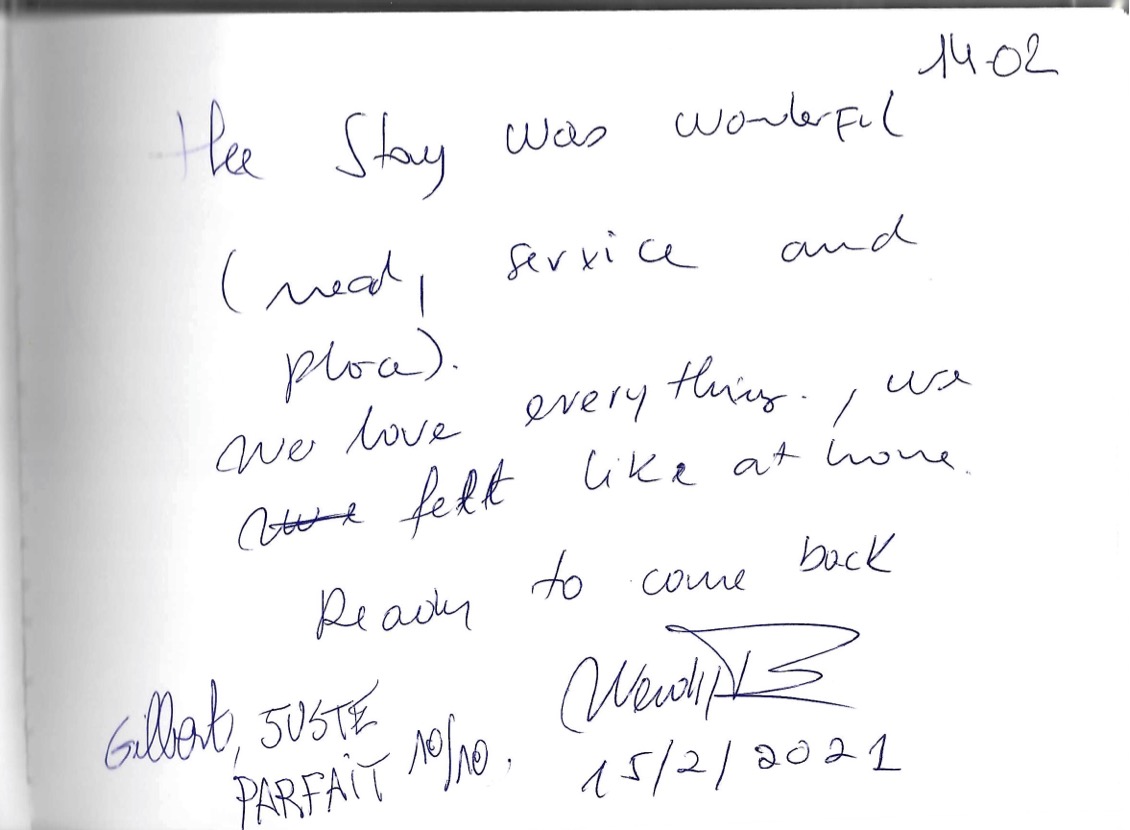 14-02
The Stay was wonderful
(meal, service and
place).
We love everything. , we
felt like at home.
Ready to come back
Wendy
Gilbert, JUSTE
PARFAIT 10/10.
15/2/2021